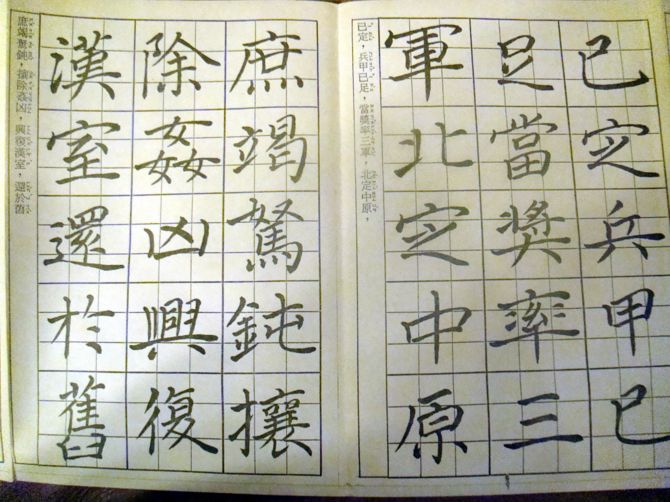 已定兵甲已
足當獎率三
軍北定中原
已定，兵甲已足，當獎率三軍，北定中原，
庶竭駑鈍攘
除姦凶興復
漢室還於舊
庶竭駑鈍，攘除姦凶，興復漢室，還於舊